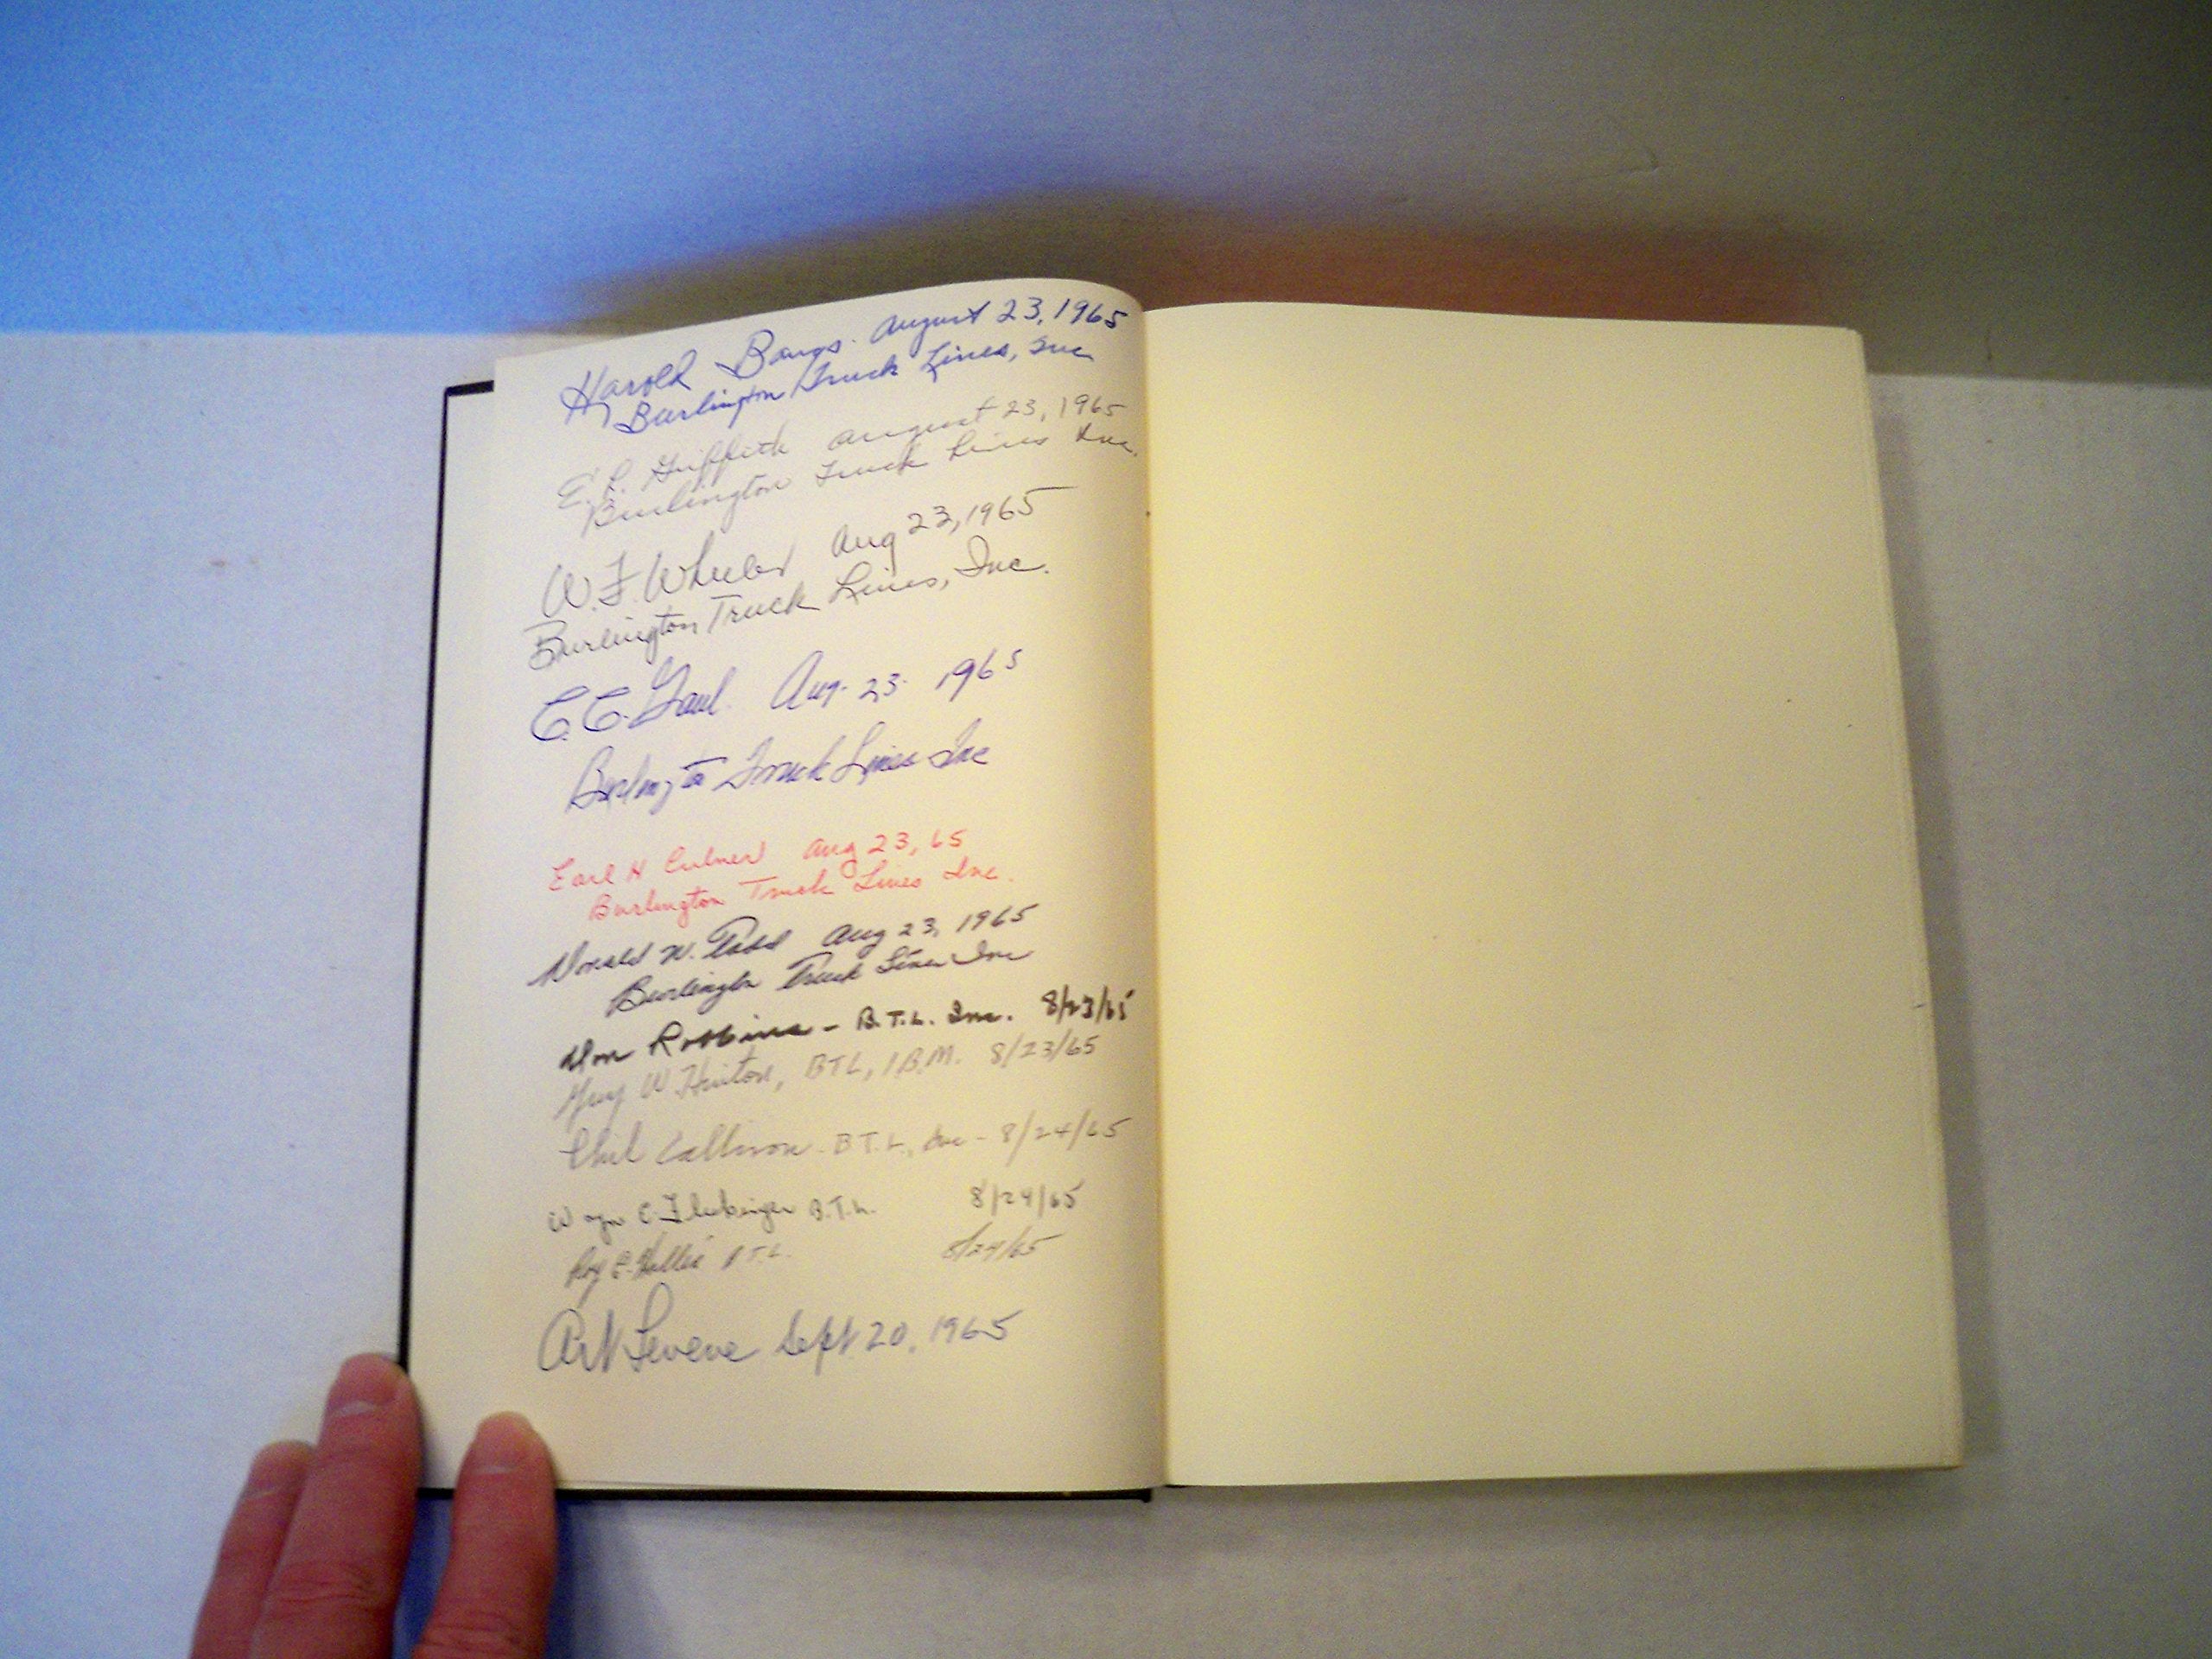 Harold August 23, 1965
Burlington Truck Lines, Inc
E. L. Griffith August 23, 1965
Burlington Truck Lines Inc.
W. F. Wheeler Aug 23, 1965
Burlington Truck Lines, Inc.
E. E. Gaul Aug. 23. 1965
Burlington Truck Lines Inc
Earl H Aug 23, 65
Burlington Truck Lines Inc.
W. Todd Aug 23, 1965
Burlington Truck Lines Inc
Don Robbins - B.T.L. Inc. 8/23/65
Guy W. Hinton, BTL, I.B.M. 8/23/65
Phil Callison - B.T.L., Inc - 8/24/65
B.T.L. 8/24/65
Roy E. Hollis B.T.L. 8/24/65
Art Levene Sept 20, 1965